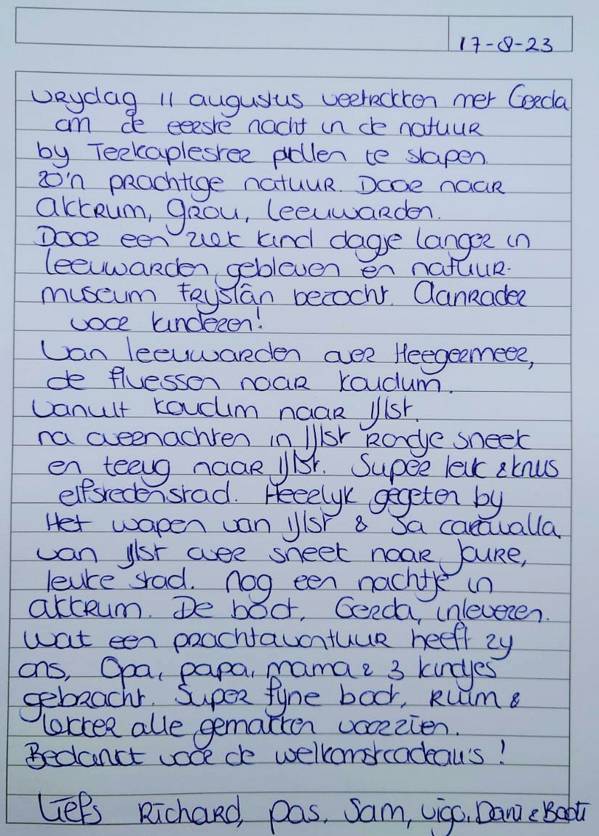 17-8-23
Vrijdag 11 augustus vertrokken met Gerda
om de eerste nacht in de natuur
bij Terkaplesterpoelen te slapen.
zo'n prachtige natuur. Door naar
Akkrum, Grou, Leeuwarden.
Door een ziek kind dagje langer in
Leeuwarden gebleven en natuur-
museum Fryslân bezocht. Aanrader
voor kinderen!
Van Leeuwarden over Heegermeer,
de fluessen naar Koudum.
Vanuit Koudum naar IJlst.
na overnachten in IJlst Rondje Sneek
en terug naar IJlst. Super leuk & knus
elfstedenstad. Heerlijk gegeten bij
Het wapen van IJlst & Sa caravalla.
van IJlst over Sneek naar Joure,
leuke stad. Nog een nachtje in
akkrum. De boot, Gerda, inleveren.
Wat een prachtavontuur heeft zij
ons, Opa, papa, mama & 3 kindjes
gebracht. Super fijne boot, Ruim &
lekker alle gemakken voorzien.
Bedankt voor de welkomstcadeau's!
Liefs Richard, Pas, Sam, Vigo, Dani &